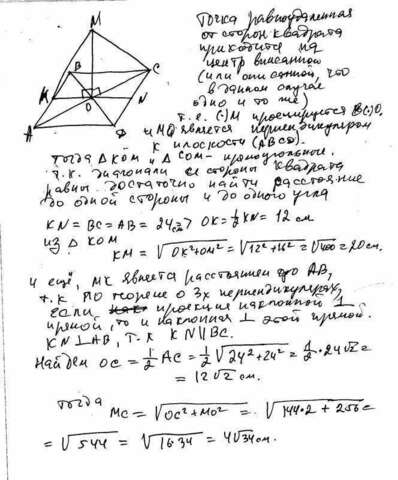 M
B
C
K
O
N
A
D
Точка равноудаленная
от сторон квадрата
приходится на
центр вписанной
(или описанной, что
в данном случае
одно и то же)
т.е. (·)M проецируется в (·)O.
и MO является перпендикуляром
к плоскости (ABCD).
Тогда Δ KOM и Δ COM - прямоугольные.
т.к. диагонали и стороны квадрата
равны достаточно найти расстояние
до одной стороны и до одного угла
KN = BC = AB = 24 см => OK = ½ KN = 12 см
из Δ KOM
KM = √OK²+OM² = √12²+16² = √400 = 20 см.
и ещё, MK является расстоянием до AB,
т.к. по теореме о 3х перпендикулярах,
если проекция наклонной ⊥
прямой, то и наклонная ⊥ этой прямой.
KN ⊥ AB, т.к. KN || BC.
Найдем OC = ½ AC = ½ √24²+24² = ½ · 24√2 =
= 12√2 см.
тогда
MC = √OC²+MO² = √144·2 + 256 =
= √544 = √16·34 = 4√34 см.